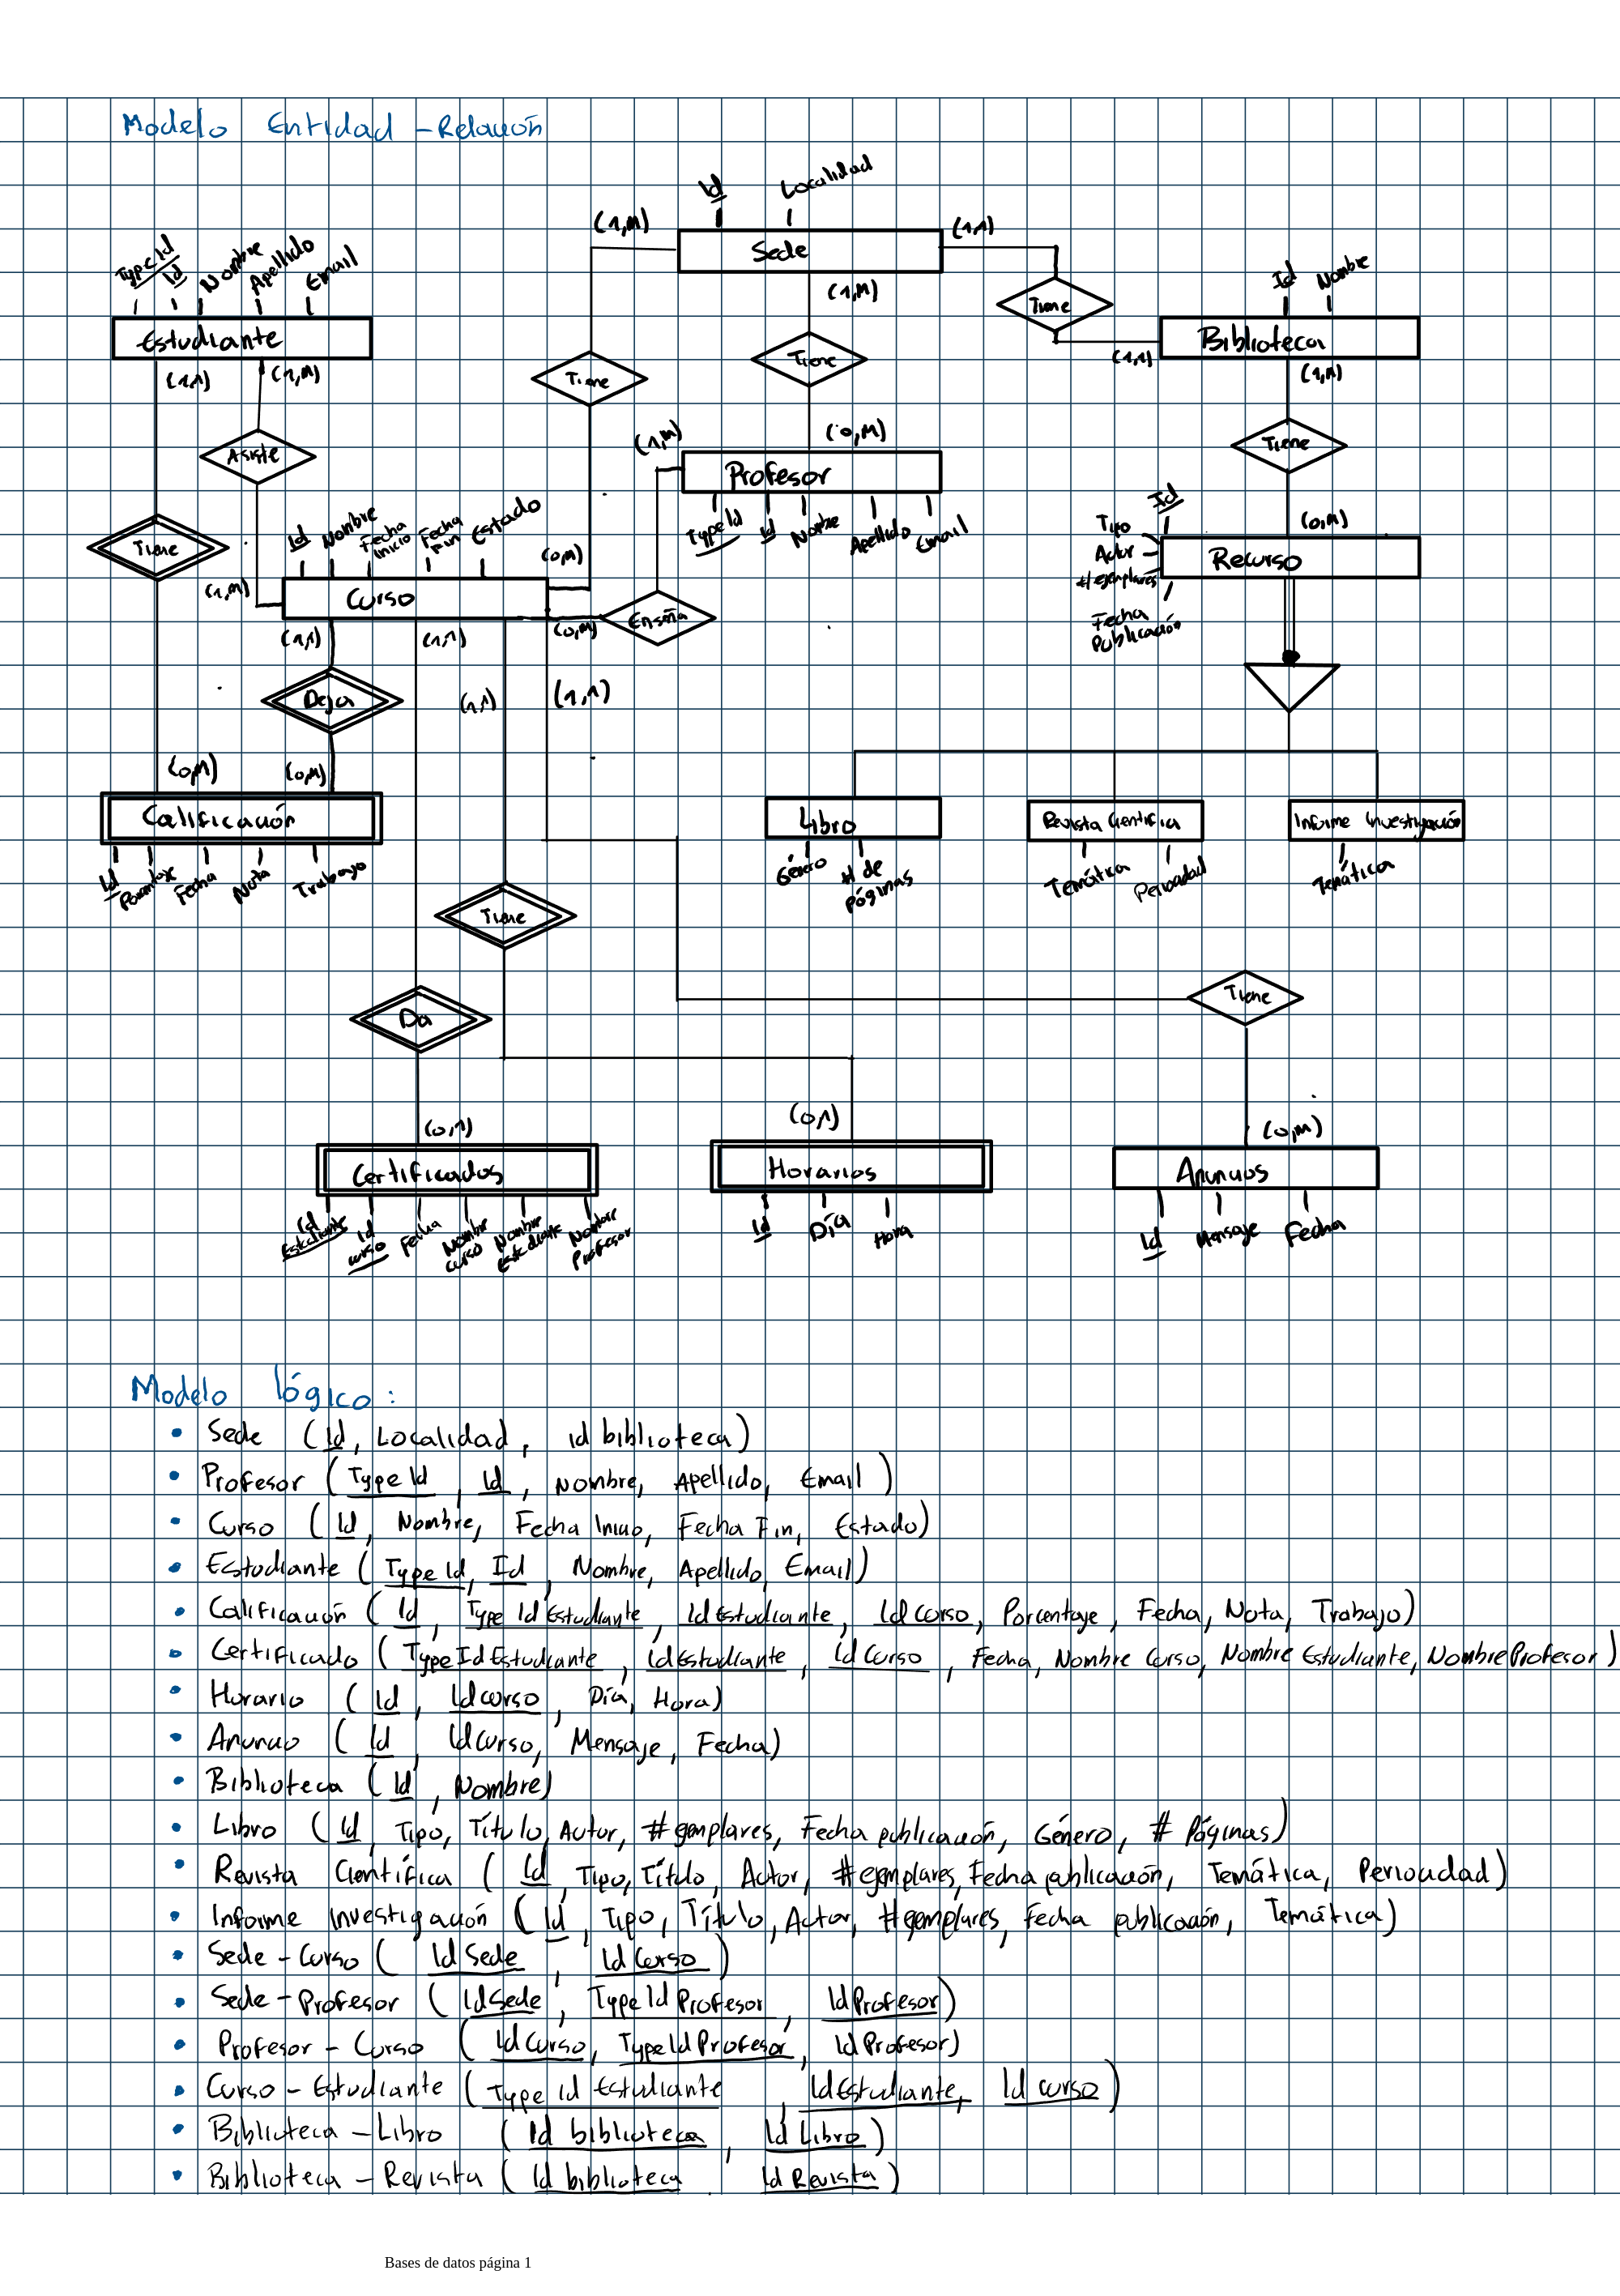 Modelo Entidad - Relación
Id Localidad
(1,M) Sede (1,1)
(1,M)
TypeId Id Nombre Apellido Email
Estudiante
(1,1) (1,M)
Tiene
Tiene
Tiene
Id Nombre
Biblioteca
(1,1) (1,M)
Asiste
(1,M) (0,M)
Profesor
TypeId Id Nombre Apellido Email
Tiene
Tiene
Id
Tipo
Autor
#ejemplares
Fecha
Publicación
(0,M)
Recurso
Id Nombre Fecha Inicio Fecha Fin Estado
(1,M) Curso (0,M)
(0,M) Enseña
(1,1) (1,1)
Deja (1,1) (1,1)
(0,M) (0,M)
Calificación
Id Porcentaje Fecha Nota Trabajo
Libro
Género # de páginas
Revista Cientifia
Temática Periocidad
Informe Investigación
Temática
Tiene
Da
Tiene
(0,1)
Certificados
Id Estudiante Id curso Fecha Nombre curso Nombre estudiante Nombre Profesor
(0,1)
Horarios
Id Día Hora
(0,M)
Anuncios
Id Mensaje Fecha
Modelo lógico:
• Sede (Id, Localidad, id biblioteca)
• Profesor (Type Id, Id, Nombre, Apellido, Email)
• Curso (Id, Nombre, Fecha Inicio, Fecha Fin, Estado)
• Estudiante (Type Id, Id, Nombre, Apellido, Email)
• Calificación (Id, Type Id Estudiante, Id Estudiante, Id curso, Porcentaje, Fecha, Nota, Trabajo)
• Certificado (Type Id Estudiante, Id Estudiante, Id Curso, Fecha, Nombre Curso, Nombre Estudiante, Nombre Profesor)
• Horario (Id, Id curso, Día, Hora)
• Anuncio (Id, Id Curso, Mensaje, Fecha)
• Biblioteca (Id, Nombre)
• Libro (Id, Tipo, Título, Autor, #ejemplares, Fecha publicación, Género, # Páginas)
• Revista Científica (Id, Tipo, Título, Autor, #ejemplares, Fecha publicación, Temática, Periocidad)
• Informe Investigación (Id, Tipo, Título, Autor, #ejemplares, Fecha publicación, Temática)
• Sede - Curso (Id Sede, Id Curso)
• Sede - Profesor (Id Sede, Type Id Profesor, Id Profesor)
• Profesor - Curso (Id Curso, Type Id Profesor, Id Profesor)
• Curso - Estudiante (Type Id Estudiante, Id Estudiante, Id curso)
• Biblioteca - Libro (Id biblioteca, Id Libro)
• Biblioteca - Revista (Id biblioteca Id Revista)
Bases de datos página 1